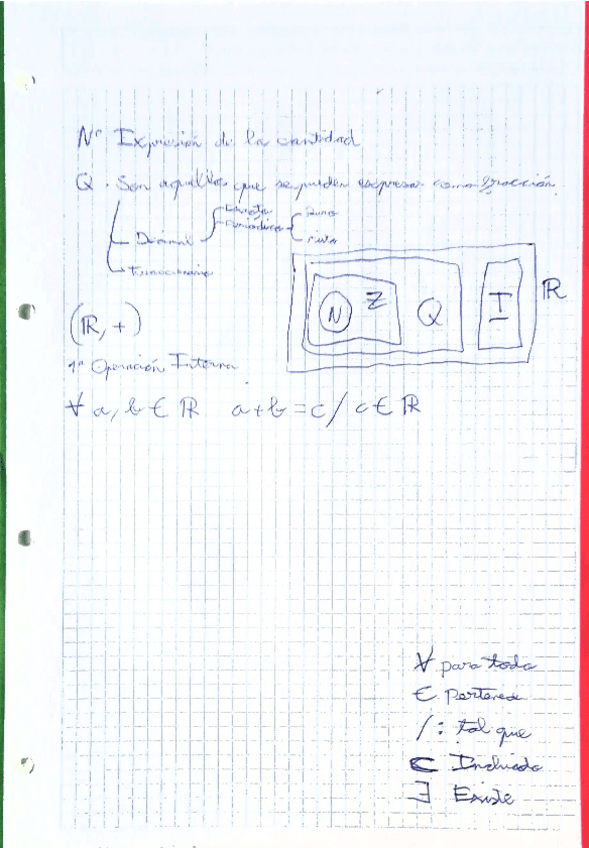 Nº Expresión de la cantidad
Q. Son aquellos que se pueden expresar como fracción.
Decimal Exacto
Periódico Puro
mixto
Fraccionario
N Z Q I R
(R, +)
1ª Operación Interna
∀ a, b ∈ R a + b = c / c ∈ R
∀ para todo
∈ Pertenece
/ : tal que
⊂ Incluido
∃ Existe